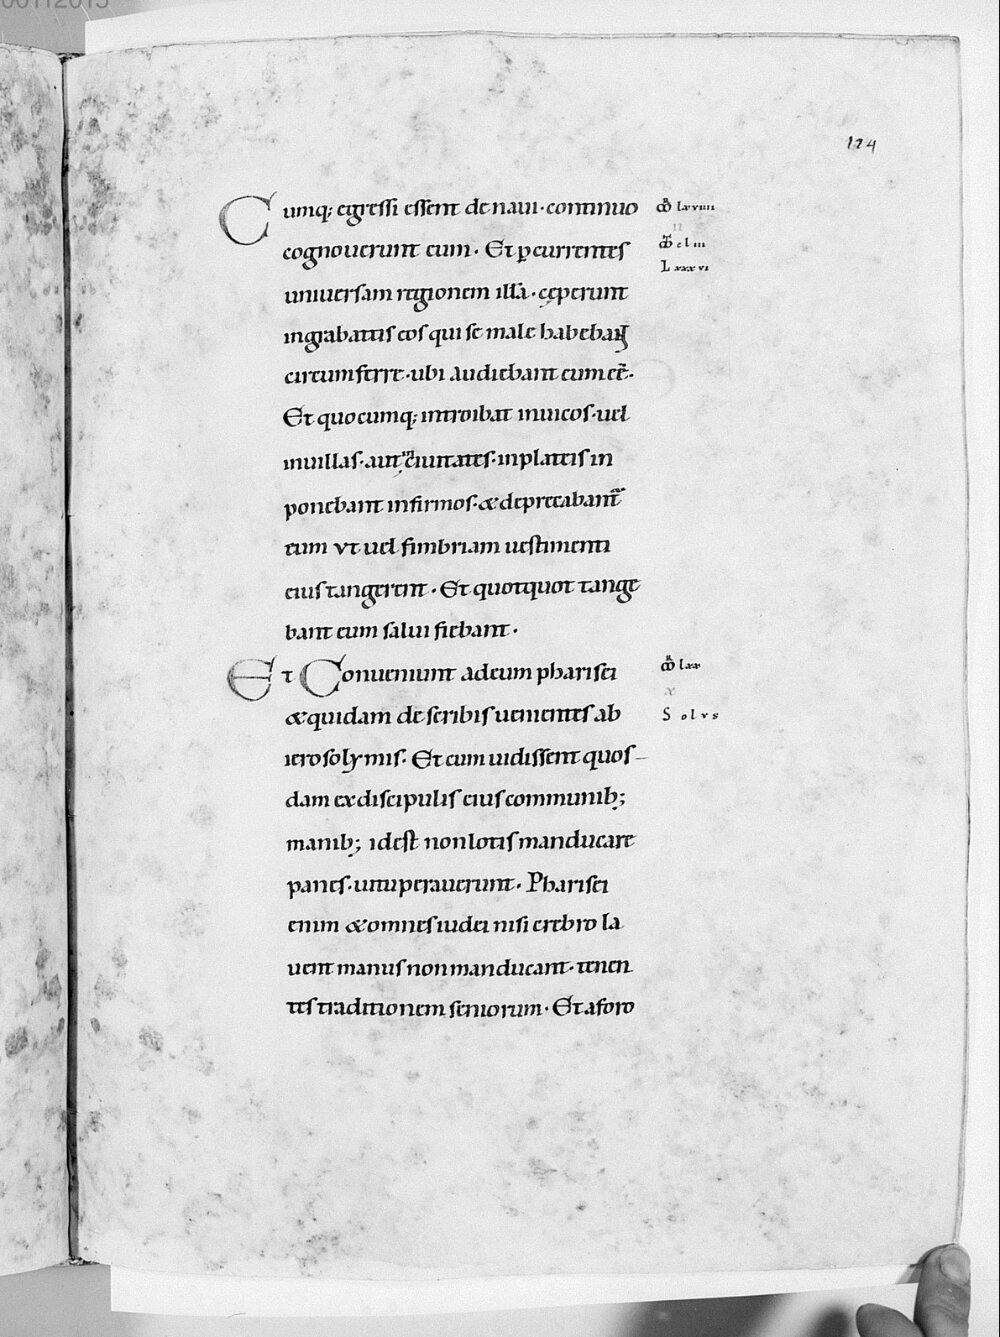 124
Cumq; egressi essent de naui · continuo
cognouerunt eum · Et ꝑcurrentes
uniuersam regionem illā · cęperunt
ingrabattis eos qui se male habebant
circumferre · ubi audiebant eum eē ·
Et quocumq; introibat inuicos · uel
inuillas · aut ciuitates · inplateis in
ponebant infirmos · & deprecabant᷑
eum vt uel fimbriam uestimenti
eius tangerent · Et quotquot tange
bant eum salui fiebant ·
Et Conueniunt adeum pharisei
& quidam de scribis uenientes ab
ierosolymis · Et cum uidissent quos-
dam exdiscipulis eius communib;
manib; idest nonlotis manducare
panes · uituperauerunt · Pharisei
enim & omnes iudei nisi crebro la
uent manus nonmanducant · tenen
tes traditionem seniorum · Et aforo
lxviiii
II
clii
Lxxxvi
lxx
x
Solus